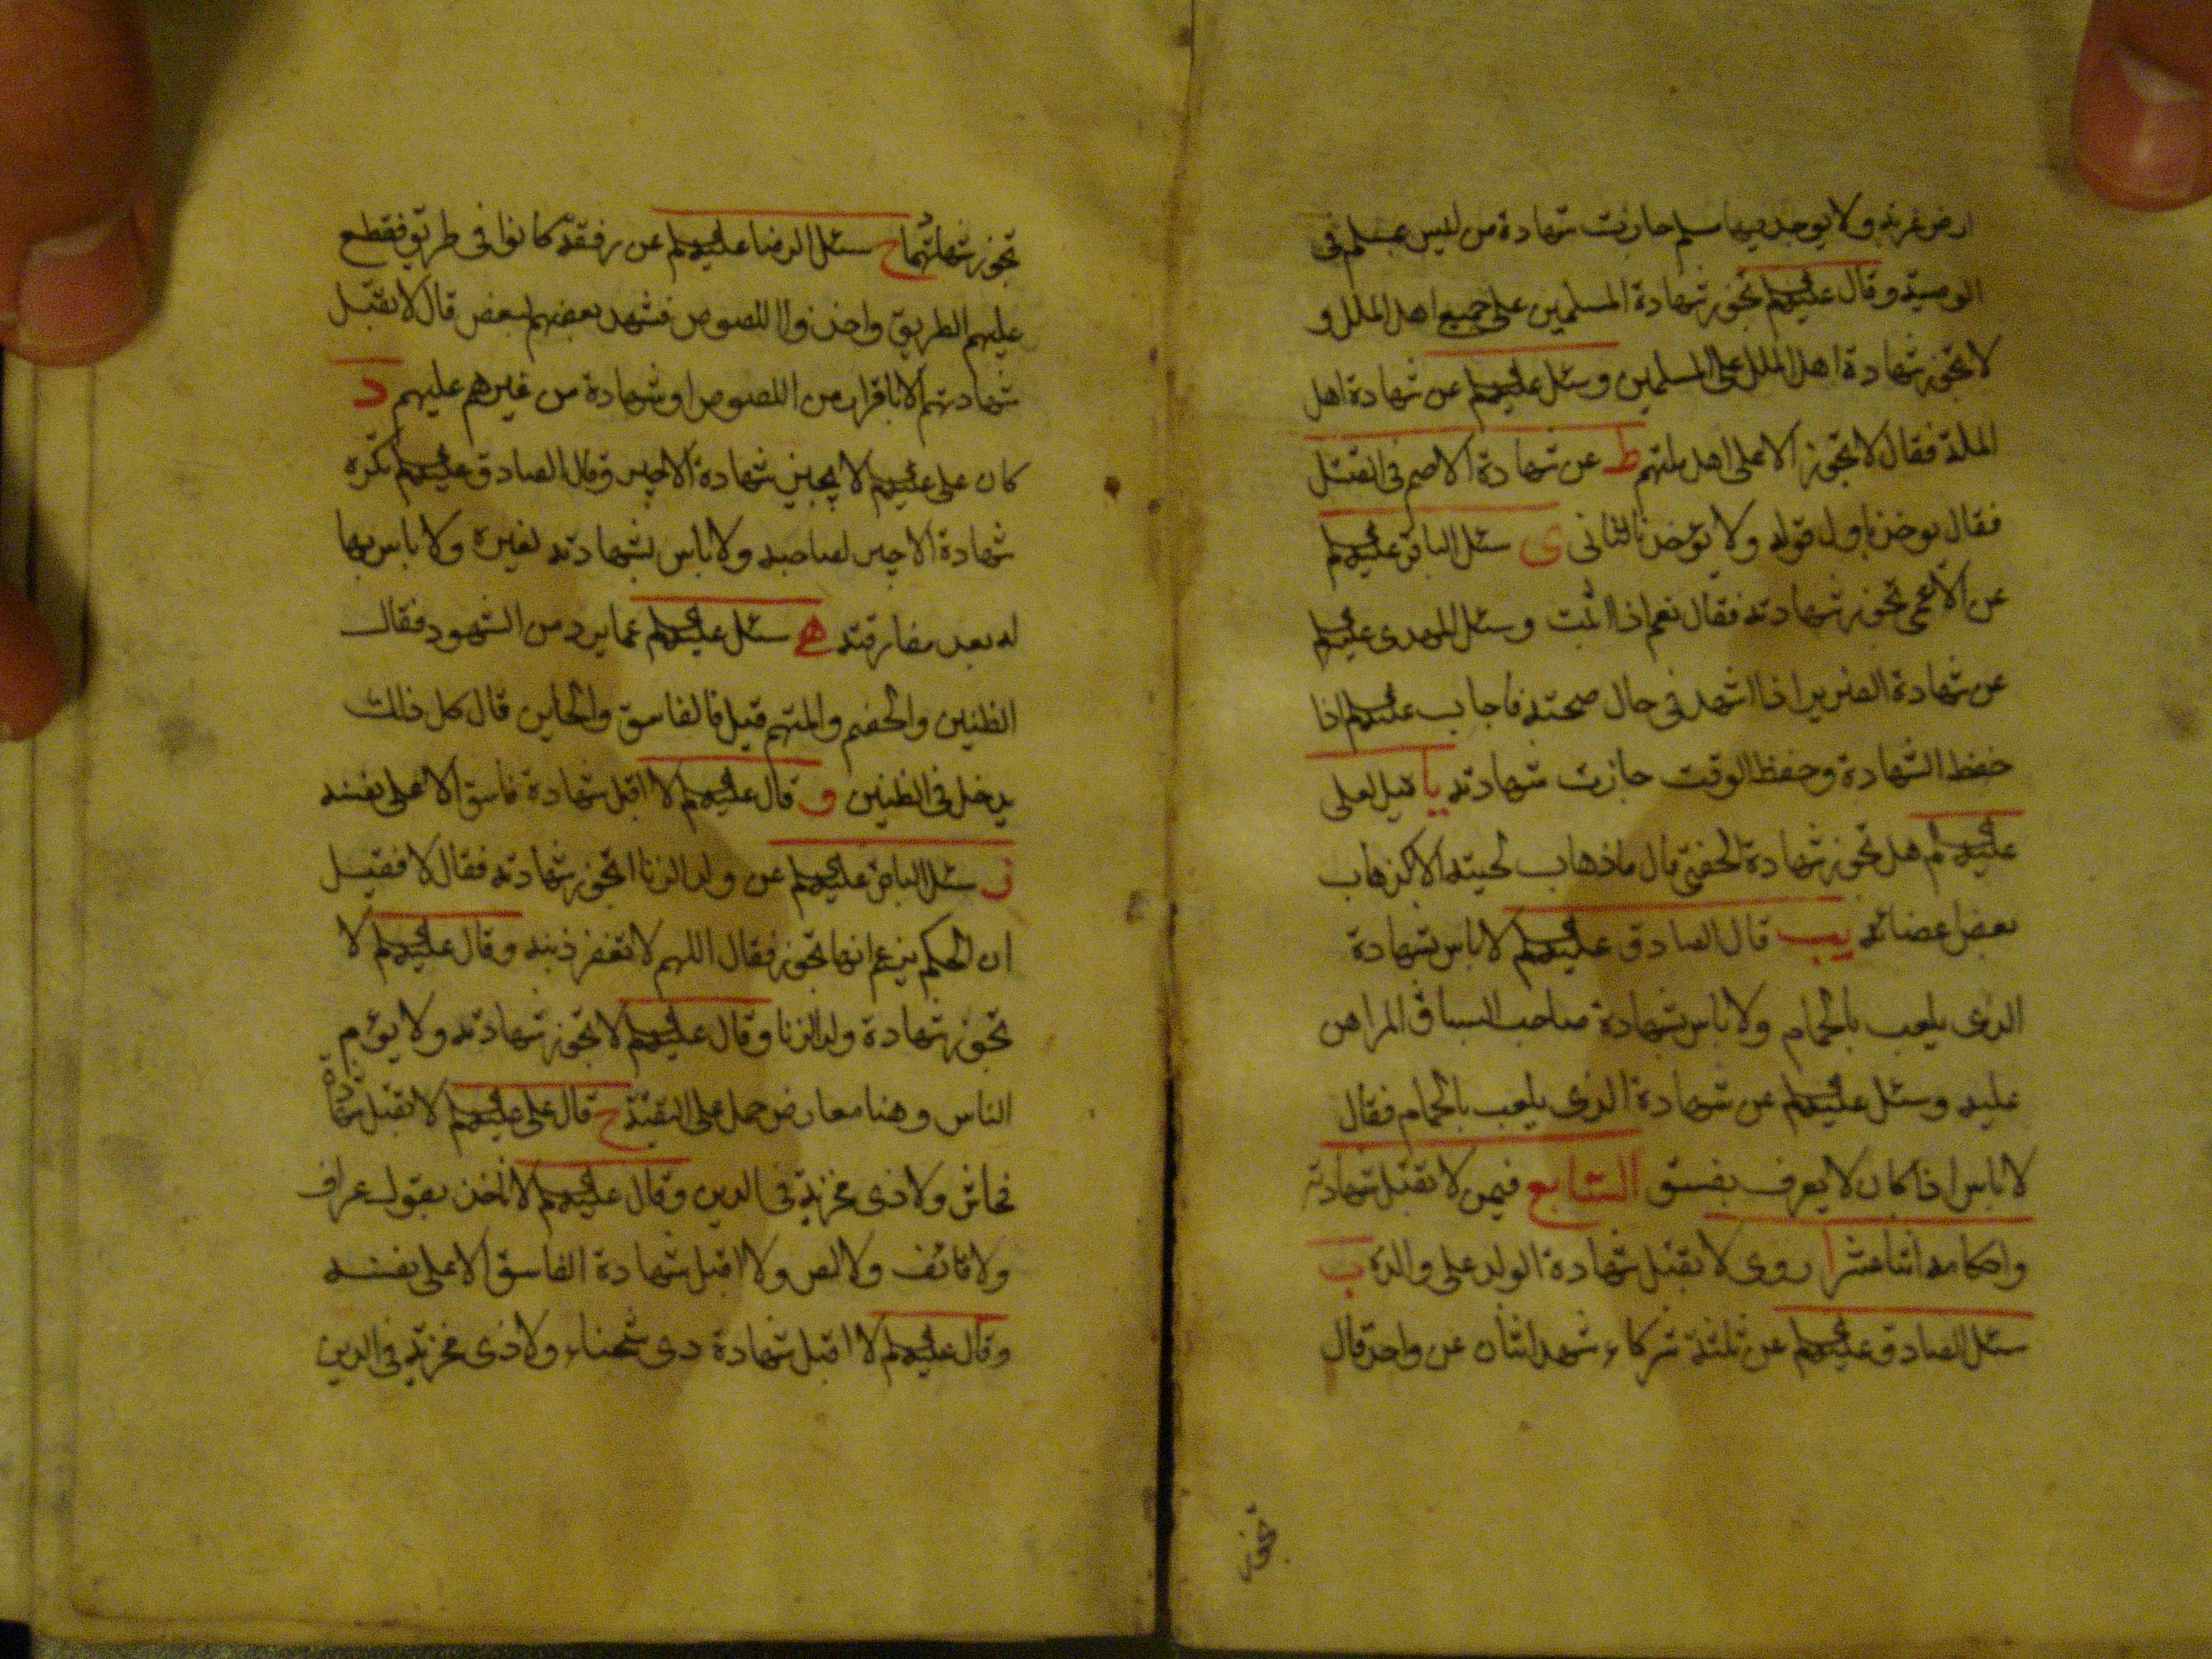 ارض غربة ولا يوجد فيها مسلم جازت شهادة من ليس بمسلم فى
الوصية وقال عليه السلم تجوز شهادة المسلمين على جميع اهل الملل و
لا تجوز شهادة اهل الملل على المسلمين وسئل عليه السلم عن شهادة اهل
الملة فقال لا تجوز الا على اهل ملتهم ط عن شهادة الاصم فى القتل
فقال يوخذ باول قوله ولا يؤخذ بالثانى ى سئل الباقر عليه السلم
عن الاعمى تجوز شهادته فقال نعم اذا اثبت وسئل المهدى عليه السلم
عن شهادة الضرير اذا اشهد فى حال صحته فاجاب عليه السلم اذا
حفظ الشهادة وحفظ الوقت جازت شهادته يا قيل لعلى
عليه السلم هل تجوز شهادة الخصى قال ما ذهاب لحيته الا كذهاب
بعض اعضائه يب قال الصادق عليه السلم لا باس بشهادة
الذى يلعب بالحمام ولا باس بشهادة صاحب السباق المراهن
عليه وسئل عليه السلم عن شهادة الذى يلعب بالحمام فقال
لا باس اذا كان لا يعرف بفسق السابع فيمن لا تقبل شهادته
واحكامه اثنا عشر ا روى لا تقبل شهادة الولد على والده ب
سئل الصادق عليه السلم عن ثلثة شركاء شهد اثنان عن واحد قال
تجوز
تجوز شهادتهما ج سئل الرضا عليه السلم عن رفقة كانوا فى طريق فقطع
عليهم الطريق واخذوا اللصوص فشهد بعضهم لبعض قال لا تقبل
شهادتهم الا باقرار من اللصوص او شهادة من غيرهم عليهم د
كان على عليه السلم لا يجيز شهادة الاجير وقال الصادق عليه السلم تكره
شهادة الاجير لصاحبه ولا باس بشهادته لغيره ولا باس بها
له بعد مفارقته ه سئل عليه السلم عما يرد من الشهود فقال
الظنين والخصم والمتهم قيل فالفاسق والخاين قال كل ذلك
يدخل فى الظنين و قال عليه السلم لا اقبل شهادة فاسق الا على نفسه
ز سئل الباقر عليه السلم عن ولد الزنا اتجوز شهادته فقال لا فقيل
ان الحكم يزعم انها تجوز فقال اللهم لا تغفر ذنبه وقال عليه السلم لا
تجوز شهادة ولد الزنا وقال عليه السلم لا تجوز شهادته ولا يؤم
الناس وهنا معارض حمل على التقية ح قال على عليه السلم لا تقبل شهادة
فحاش ولا ذى مخزية فى الدين وقال عليه السلم لا آخذ بقول عراف
ولا قائف ولا لص ولا اقبل شهادة الفاسق الا على نفسه
وقال عليه السلم لا اقبل شهادة ذى شحناء ولا ذى مخزية فى الدين